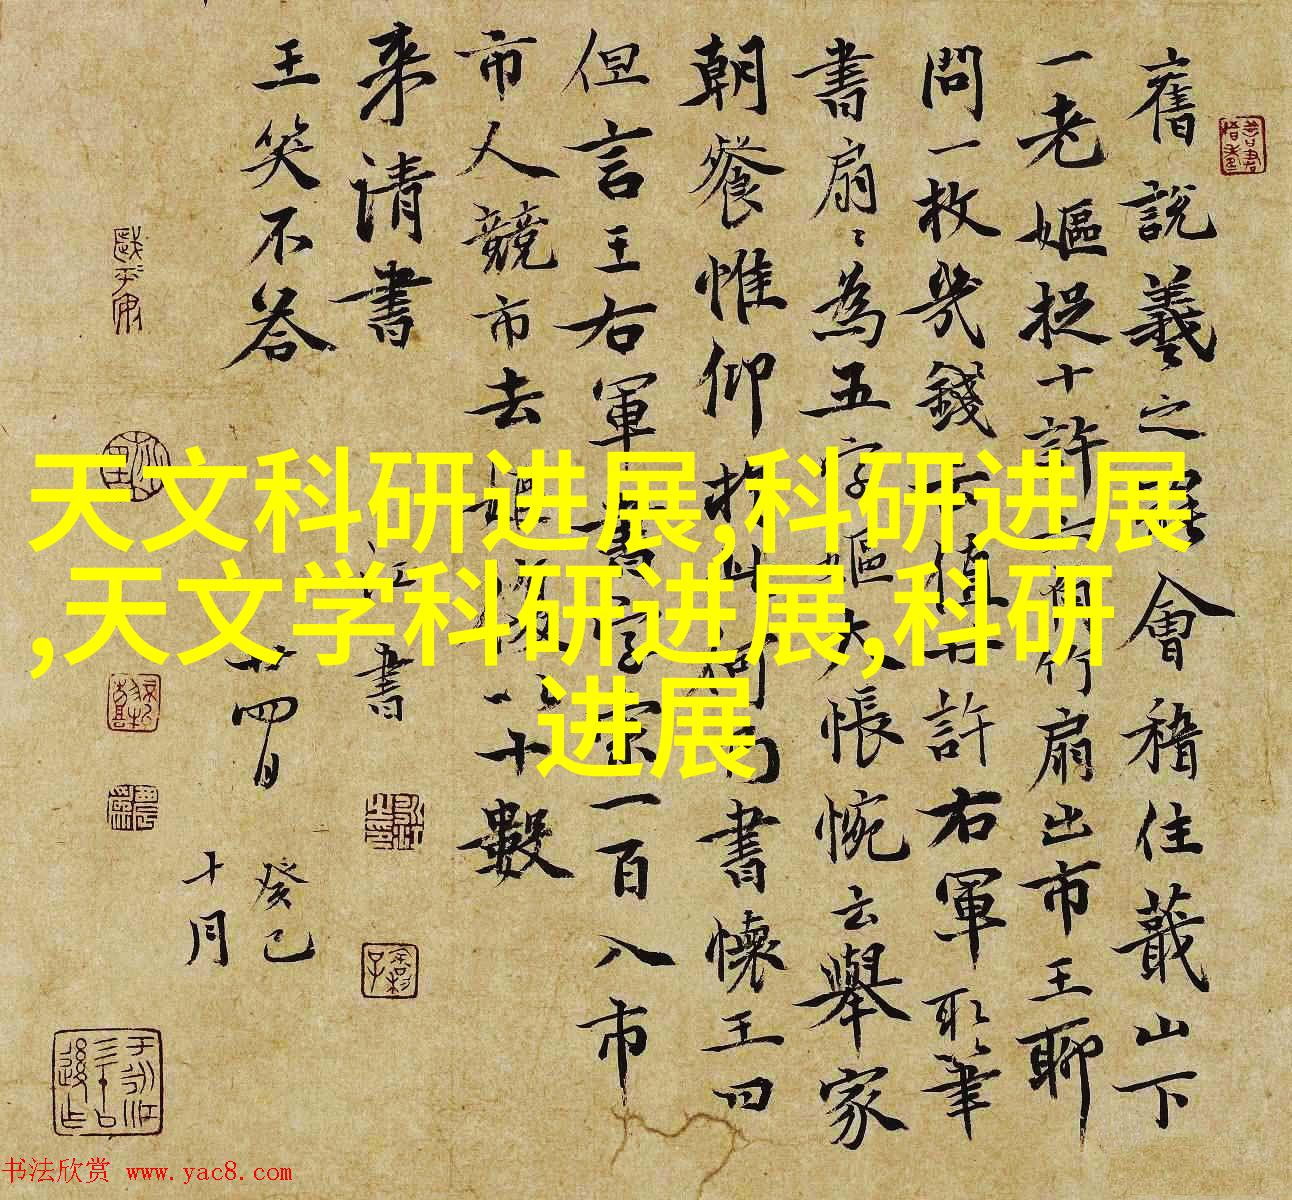 舊說羲之罷會稽住蕺山下
一老嫗捉十許六角竹扇出市王聊
問一枚幾錢云直廿許右軍取筆
書扇扇為五字嫗大悵惋云舉家
朝餐惟仰於此何而書壞王曰
但言王右軍書字索一百入市
市人競市去嫗復以十數
来請書
王笑不答
書
廿四日
癸巳
十月
天文科研进展,科研进展
,天文学科研进展,科研
进展
书法欣赏 www.yac8.com